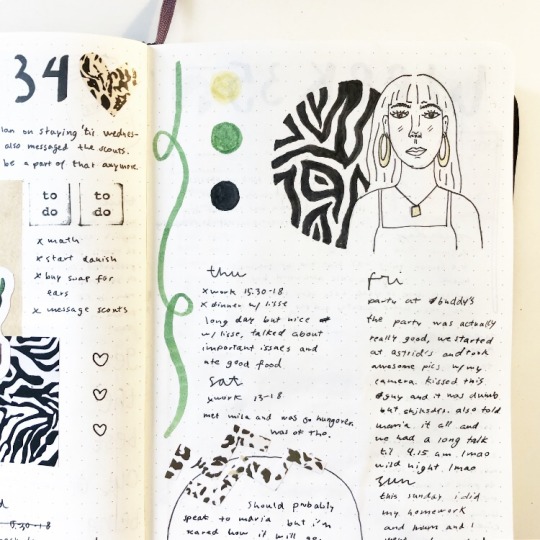 34
lan on staying 'til wednes-
also messaged the scouts.
be a part of that anymore.
to do
to do
x math
x start danish
x buy swap for
ears
x message scouts
thu
x work 15.30-18
x dinner w/ lisse
long day but nice
w/ lisse, talked about
important issues and
ate good food
sat
x work 13-18
met mila and was so hungover.
was ok tho.
should probably
speak to maria but i'm
scared how it will go.
fri
party at buddy's
the party was actually
really good, we started
at astrid's and took
awesome pics w/ my
camera. kissed this
guy and it was dumb
but also told
maria it all and
we had a long talk
til 4.15 am. lmao
wild night. lmao
sun
this sunday i did
my homework
and and i